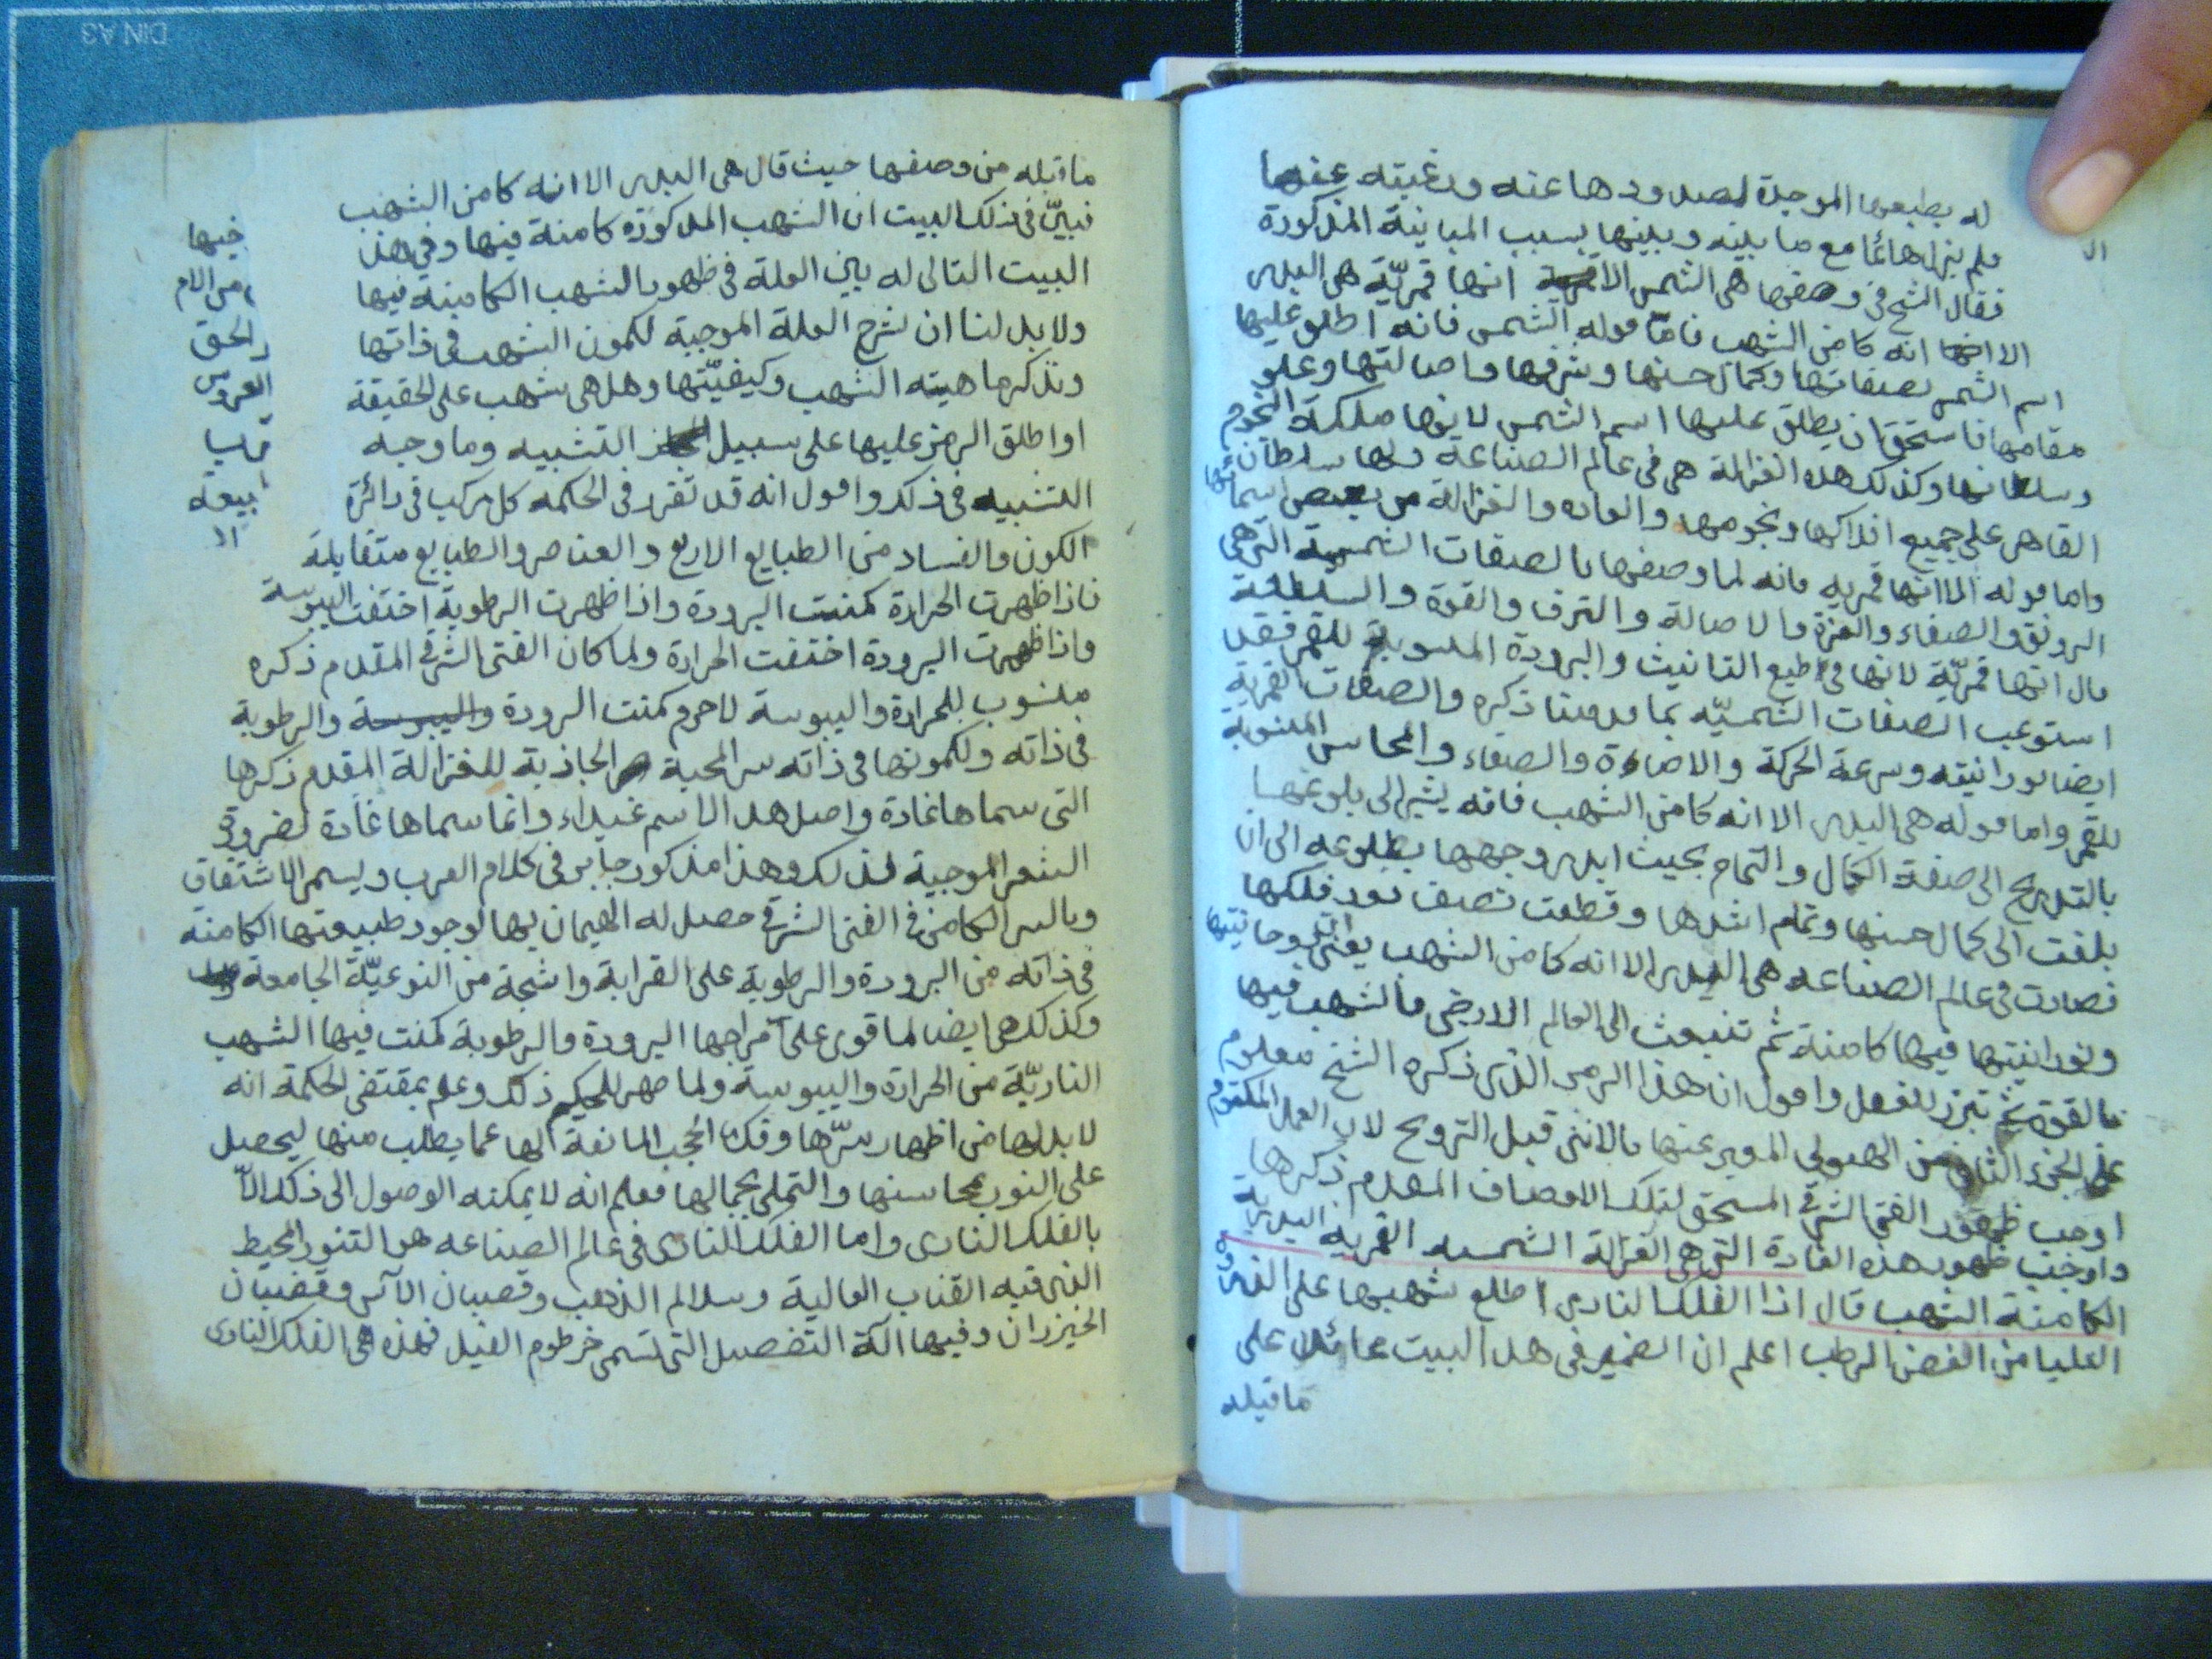 له بطبعها الموجدة لصدودها عنه ورغبته عنها
فلم يزل هائما مع ما بينه وبينها بسبب المباينة المذكورة
فقال الشيخ في وصفها هي الشمس الا انها قمريّة هي البدر
الا انه كامن الشهب فامّا قوله الشمس فانه اطلق عليها
اسم الشمس لصفاتها وكمال حسنها وشرفها واصالتها وعلو
مقامها فاستحق ان يطلق عليها اسم الشمس لانها ملكة النجوم
وسلطانها وكذلك هذه الغزالة هي في عالم الصناعة لها سلطان
القاهر على جميع افلاكها ونجومها والغاده والغزالة من بعض اسما
واما قوله الا انها قمريه فانه لما وصفها بالصفات الشمسية التي هي
الرونق والصفاء والعزة والاصالة والشرف والقوة والسلطنة
قال انها قمريّة لانها في طبع التانيث والبرودة المنسوبة للقمر فقد
استوعب الصفات الشمسيّه بما قدمنا ذكره والصفات القمرية
ايضا نورانيته وسرعة الحركة والاضاءة والصفاء والمحاسن المنسوبة
للقمر واما قوله هي البدر الا انه كامن الشهب فانه يشير الى بلوغها
بالتدريج الى صفة الكمال والتمام بحيث ابدر وجهها بطلوعه الى ان
بلغت الى كمال حسنها وتمام اشدها وقطعت نصف دور فلكها
فصارت في عالم الصناعه هي البدر الا انه كامن الشهب يعني ان روحانيتها
ونورانيتها فيها كامنة ثم تنبعث الى العالم الارضي فالشهب فيها
بالقوة ثم تبرز للفعل واقول ان هذا الرمز الذي ذكره الشيخ معلوم
على الجزء الثاني من الهيولي المعبر عنها بالانثى قبل التزويج لان العمل المكتوم
اوجب ظهور الفتى الشرقي المستحق لتلك الاوصاف المقدم ذكرها
واوجب ظهور هذه الغادة التي هي الغزالة الشمسيه القمريه البدرية
الكامنة الشهب قال اذا الفلك الناري اطلع شهبها على الذروة
العليا من الغصن الرطب اعلم ان الضمير في هذا البيت عائد على
ما قبله
ما قبله من وصفها حيث قال هي البدر الا انه كامن الشهب
فبيّن في ذلك البيت ان الشهب المذكورة كامنة فيها وفي هذا
البيت التالي له بين العلة في ظهور الشهب الكامنة فيها
ولا بد لنا ان نشرح العلة الموجبة لكمون الشهب في ذاتها
ونذكر ماهيته الشهب وكيفيّتها وهل هي شهب على الحقيقة
او اطلق الرمز عليها على سبيل التشبيه وما وجه
التشبيه في ذلك واقول انه قد تقرر في الحكمة كل مركب في دائرة
الكون والفساد من الطبايع الاربع والعناصر والطبايع متقابلة
فاذا ظهرت الحرارة كمنت البرودة واذا ظهرت الرطوبة اختفت اليبوسة
واذا ظهرت البرودة اختفت الحرارة ولما كان الفتى الشرقي المقدم ذكره
منسوب للحرارة واليبوسة لاجرم كمنت البرودة واليبوسة والرطوبة
في ذاته ولكمونها في ذاته سر المحبة الجاذبة للغزالة المقدم ذكرها
التي سماها غادة واصل هذا الاسم غيداء وانما سماها غادة لضرورة
الشعر الموجبة لذلك وهذا مذكور جايز في كلام العرب ويسمى الاشتقاق
وبالسر الكامن في الفتى الشرقي حصل له الهيمان بها لوجود طبيعتها الكامنة
في ذاته من البرودة والرطوبة على القرابة واشجة من النوعيّة الجامعة
وكذلك هي ايضا لما قوي على مزاجها البرودة والرطوبة كمنت فيها الشهب
الناريّة من الحرارة واليبوسة ولما ظهر للحكيم ذلك وعلم بمقتضى الحكمة انه
لا بد لها من اظهار سرّها وفك الحجب المانعة لها عما يطلب منها ليحصل
على النور بمحاسنها والتملي بجمالها فعلم انه لا يمكنه الوصول الى ذلك الاّ
بالفلك الناري واما الفلك الناري في عالم الصناعه هو التنور المحيط
الذي فيه القباب العالية وسلالم الذهب وقضبان الآس وقضبان
الخيزران وفيها الة التفصيل التي تسمى خرطوم الفيل فهذه هي الفلك الناري
فيها
من الام
الحق
العروس